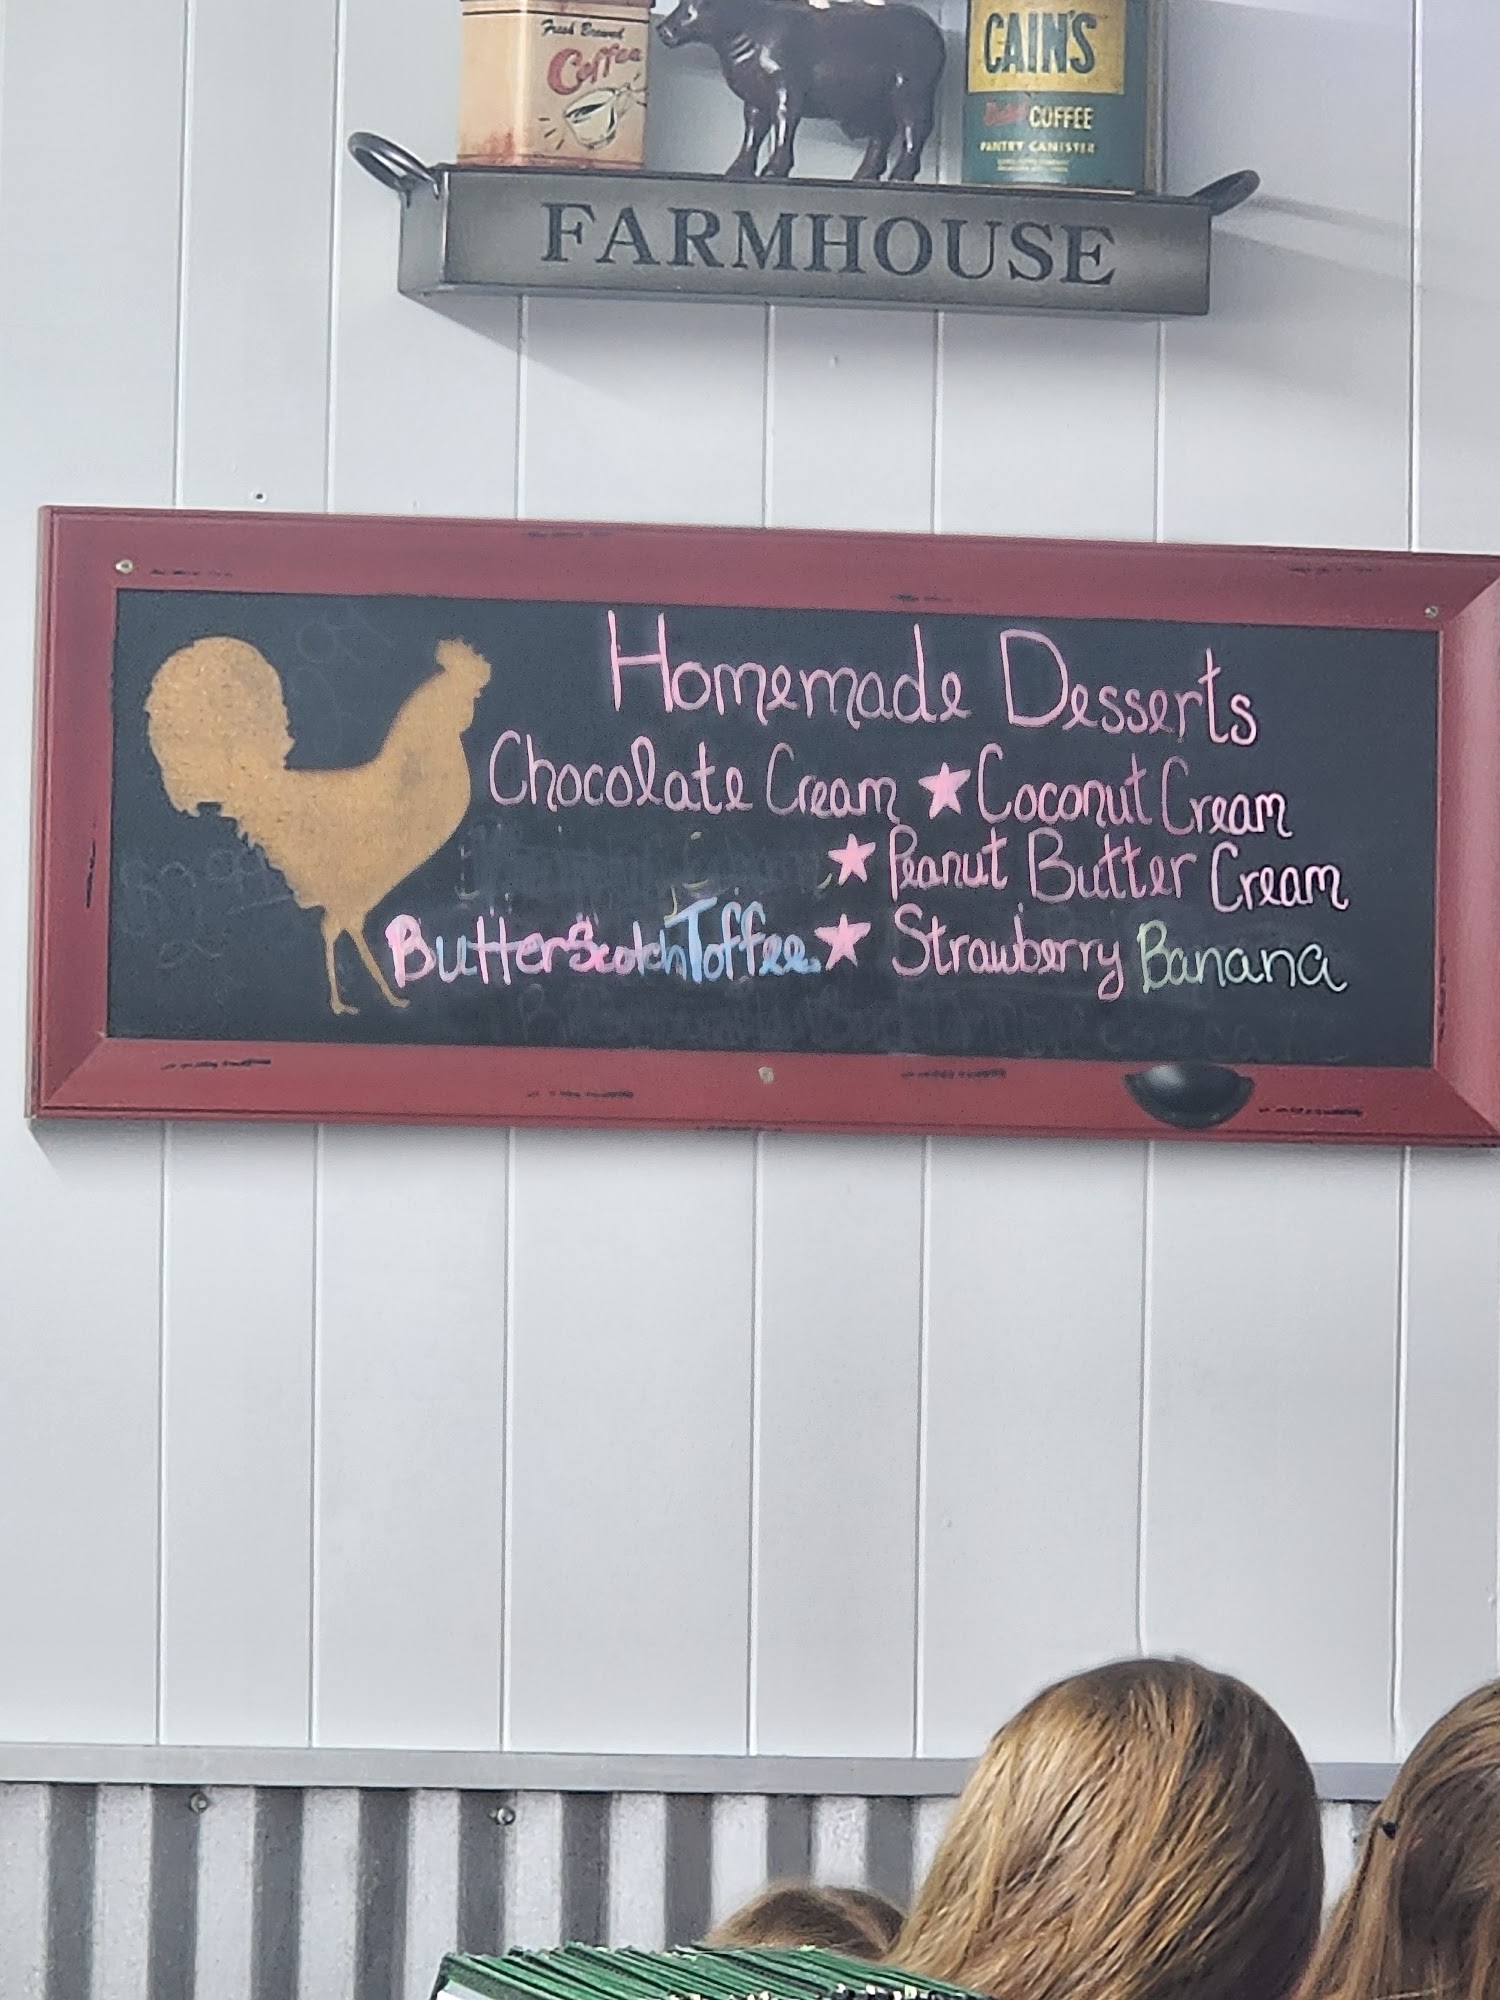 Fresh Brewed
Coffee
CAIN'S
COFFEE
PANTRY CANISTER
FARMHOUSE
Homemade Desserts
Chocolate Cream ★ Coconut Cream
★ Peanut Butter Cream
ButterScotch Toffee ★ Strawberry Banana